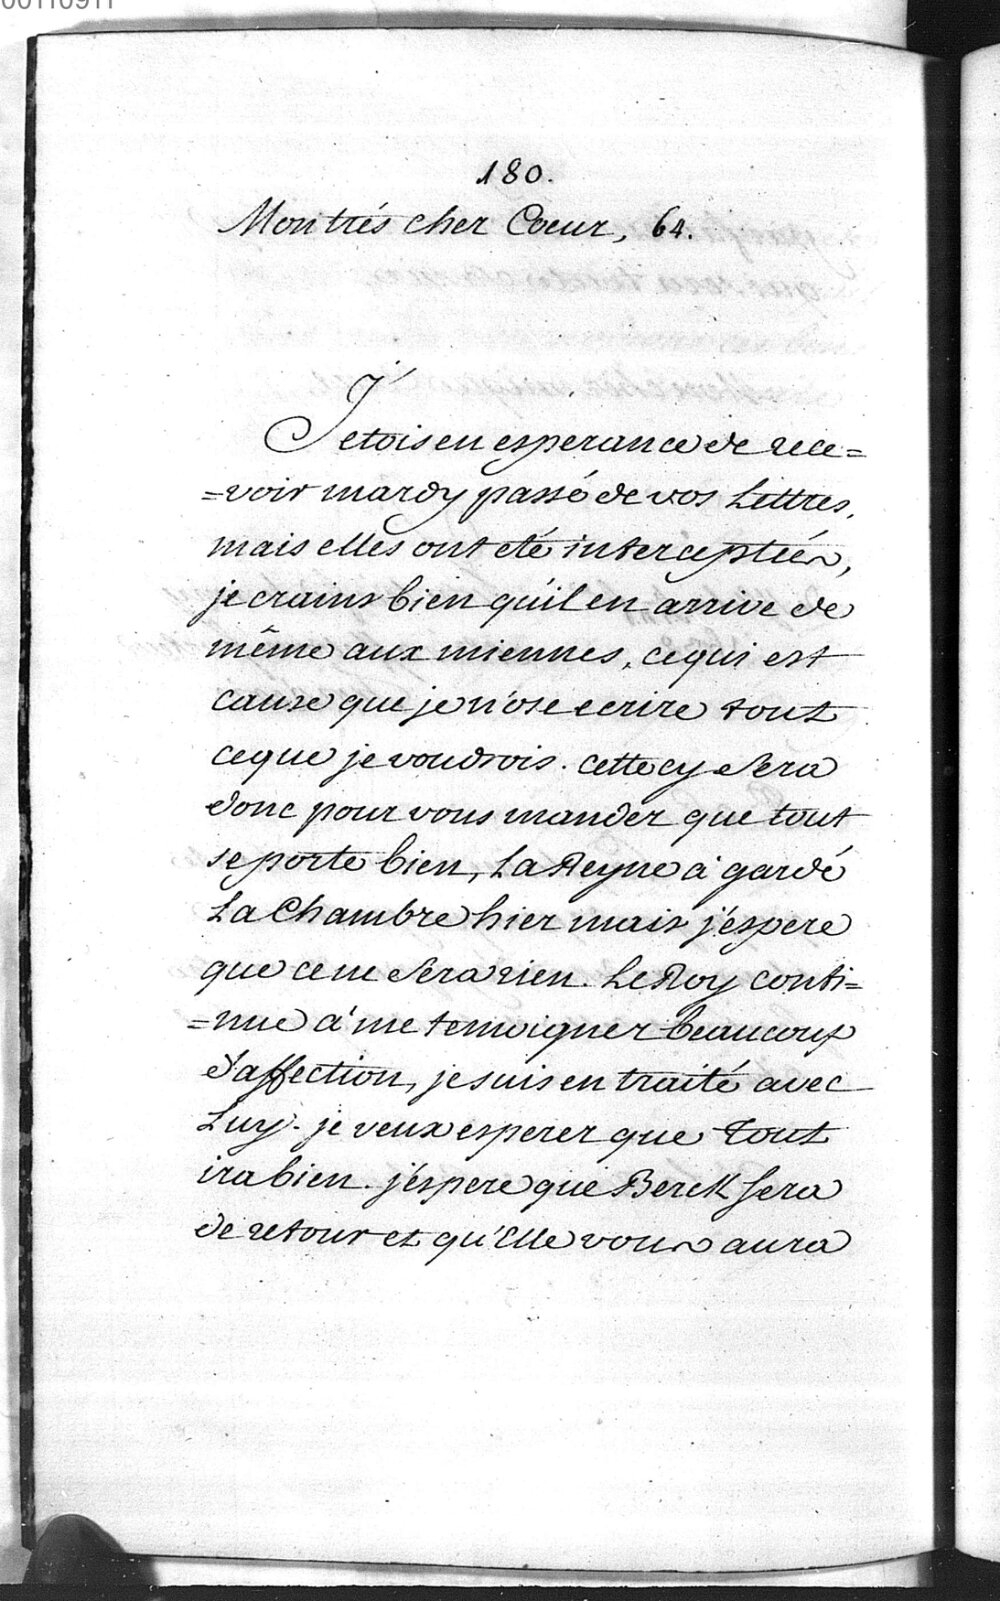 00110911
180.
Mon trés cher Coeur, 64.
J'etois en esperance de rece=
=voir mardy passé de vos Lettres,
mais elles ont eté interceptées,
je crains bien qu'il en arrive de
même aux miennes, ce qui est
cause que je n'ose ecrire tout
ce que je voudrois. cette cy sera
donc pour vous mander que tout
se porte bien, La Reyne à gardé
La Chambre hier mais j'espere
que ce ne sera rien. Le Roy conti=
=nue à me temoigner beaucoup
d'affection, je suis en traité avec
Luy. je veux esperer que tout
ira bien. j'espere que Berck sera
de retour et qu'Elle vous aura